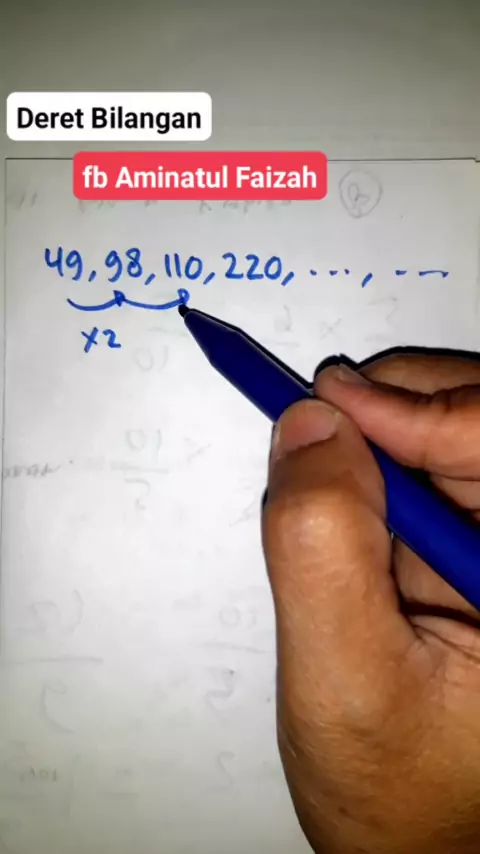 Deret Bilangan
fb Aminatul Faizah
49, 98, 110, 220, ..., ---
x2